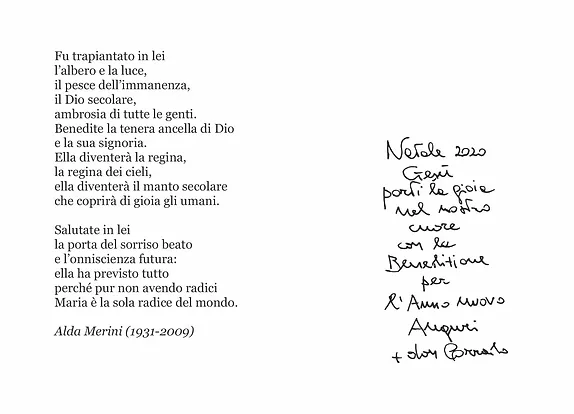 Fu trapiantato in lei
l'albero e la luce,
il pesce dell'immanenza,
il Dio secolare,
ambrosia di tutte le genti.
Benedite la tenera ancella di Dio
e la sua signoria.
Ella diventerà la regina,
la regina dei cieli,
ella diventerà il manto secolare
che coprirà di gioia gli umani.
Salutate in lei
la porta del sorriso beato
e l'onniscienza futura:
ella ha previsto tutto
perché pur non avendo radici
Maria è la sola radice del mondo.
Alda Merini (1931-2009)
Natale 2020
Gesù
porti la gioia
nel nostro
cuore
con la
Benedizione
per
l'Anno nuovo
Auguri
+ don